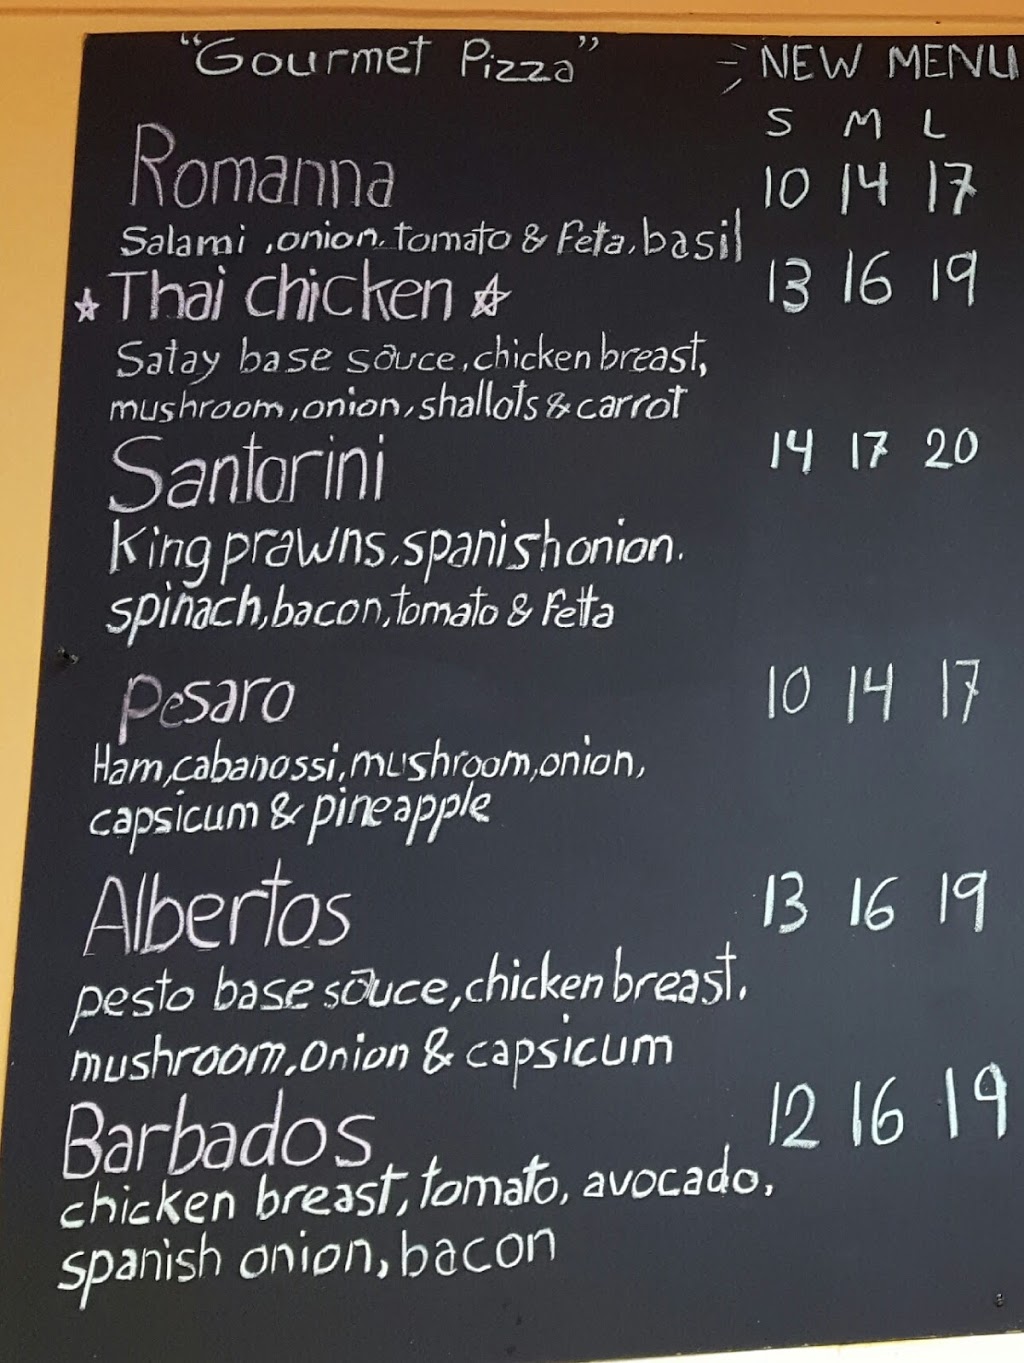 "Gourmet Pizza" NEW MENU
S M L
Romanna 10 14 17
Salami, onion, tomato & Feta, basil
Thai chicken 13 16 19
Satay base sauce, chicken breast,
mushroom, onion, shallots & carrot
Santorini 14 17 20
King prawns, spanish onion.
spinach, bacon, tomato & Fetta
Pesaro 10 14 17
Ham, cabanossi, mushroom, onion,
capsicum & pineapple
Albertos 13 16 19
pesto base sauce, chicken breast,
mushroom, onion & capsicum
Barbados 12 16 19
chicken breast, tomato, avocado,
spanish onion, bacon